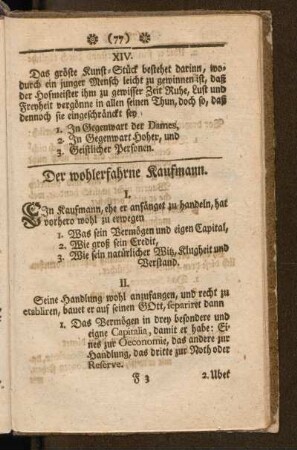 (77)
XIV.
Das gröste Kunst-Stück bestehet darinn, wo-
durch ein junger Mensch leicht zu gewinnen ist, daß
der Hofmeister ihm zu gewisser Zeit Ruhe, Lust und
Freyheit vergönne in allen seinen Thun, doch so, daß
dennoch sie eingeschränckt sey
1. In Gegenwart der Dames,
2. In Gegenwart Hoher, und
3. Geistlicher Personen.
Der wohlerfahrne Kaufmann.
I.
EIn Kaufmann, ehe er anfänget zu handeln, hat
vorhero wohl zu erwegen
1. Was sein Vermögen und eigen Capital,
2. Wie groß sein Credit,
3. Wie sein natürlicher Witz, Klugheit und
Verstand.
II.
Seine Handlung wohl anzufangen, und recht zu
etabliren, bauet er auf seinen GOtt, separiret dann
1. Das Vermögen in drey besondere und
eigne Capitalia, damit er habe: Ei-
nes zur Oeconomie, das andere zur
Handlung, das dritte zur Noth oder
Reserve.
F 3
2. Uber